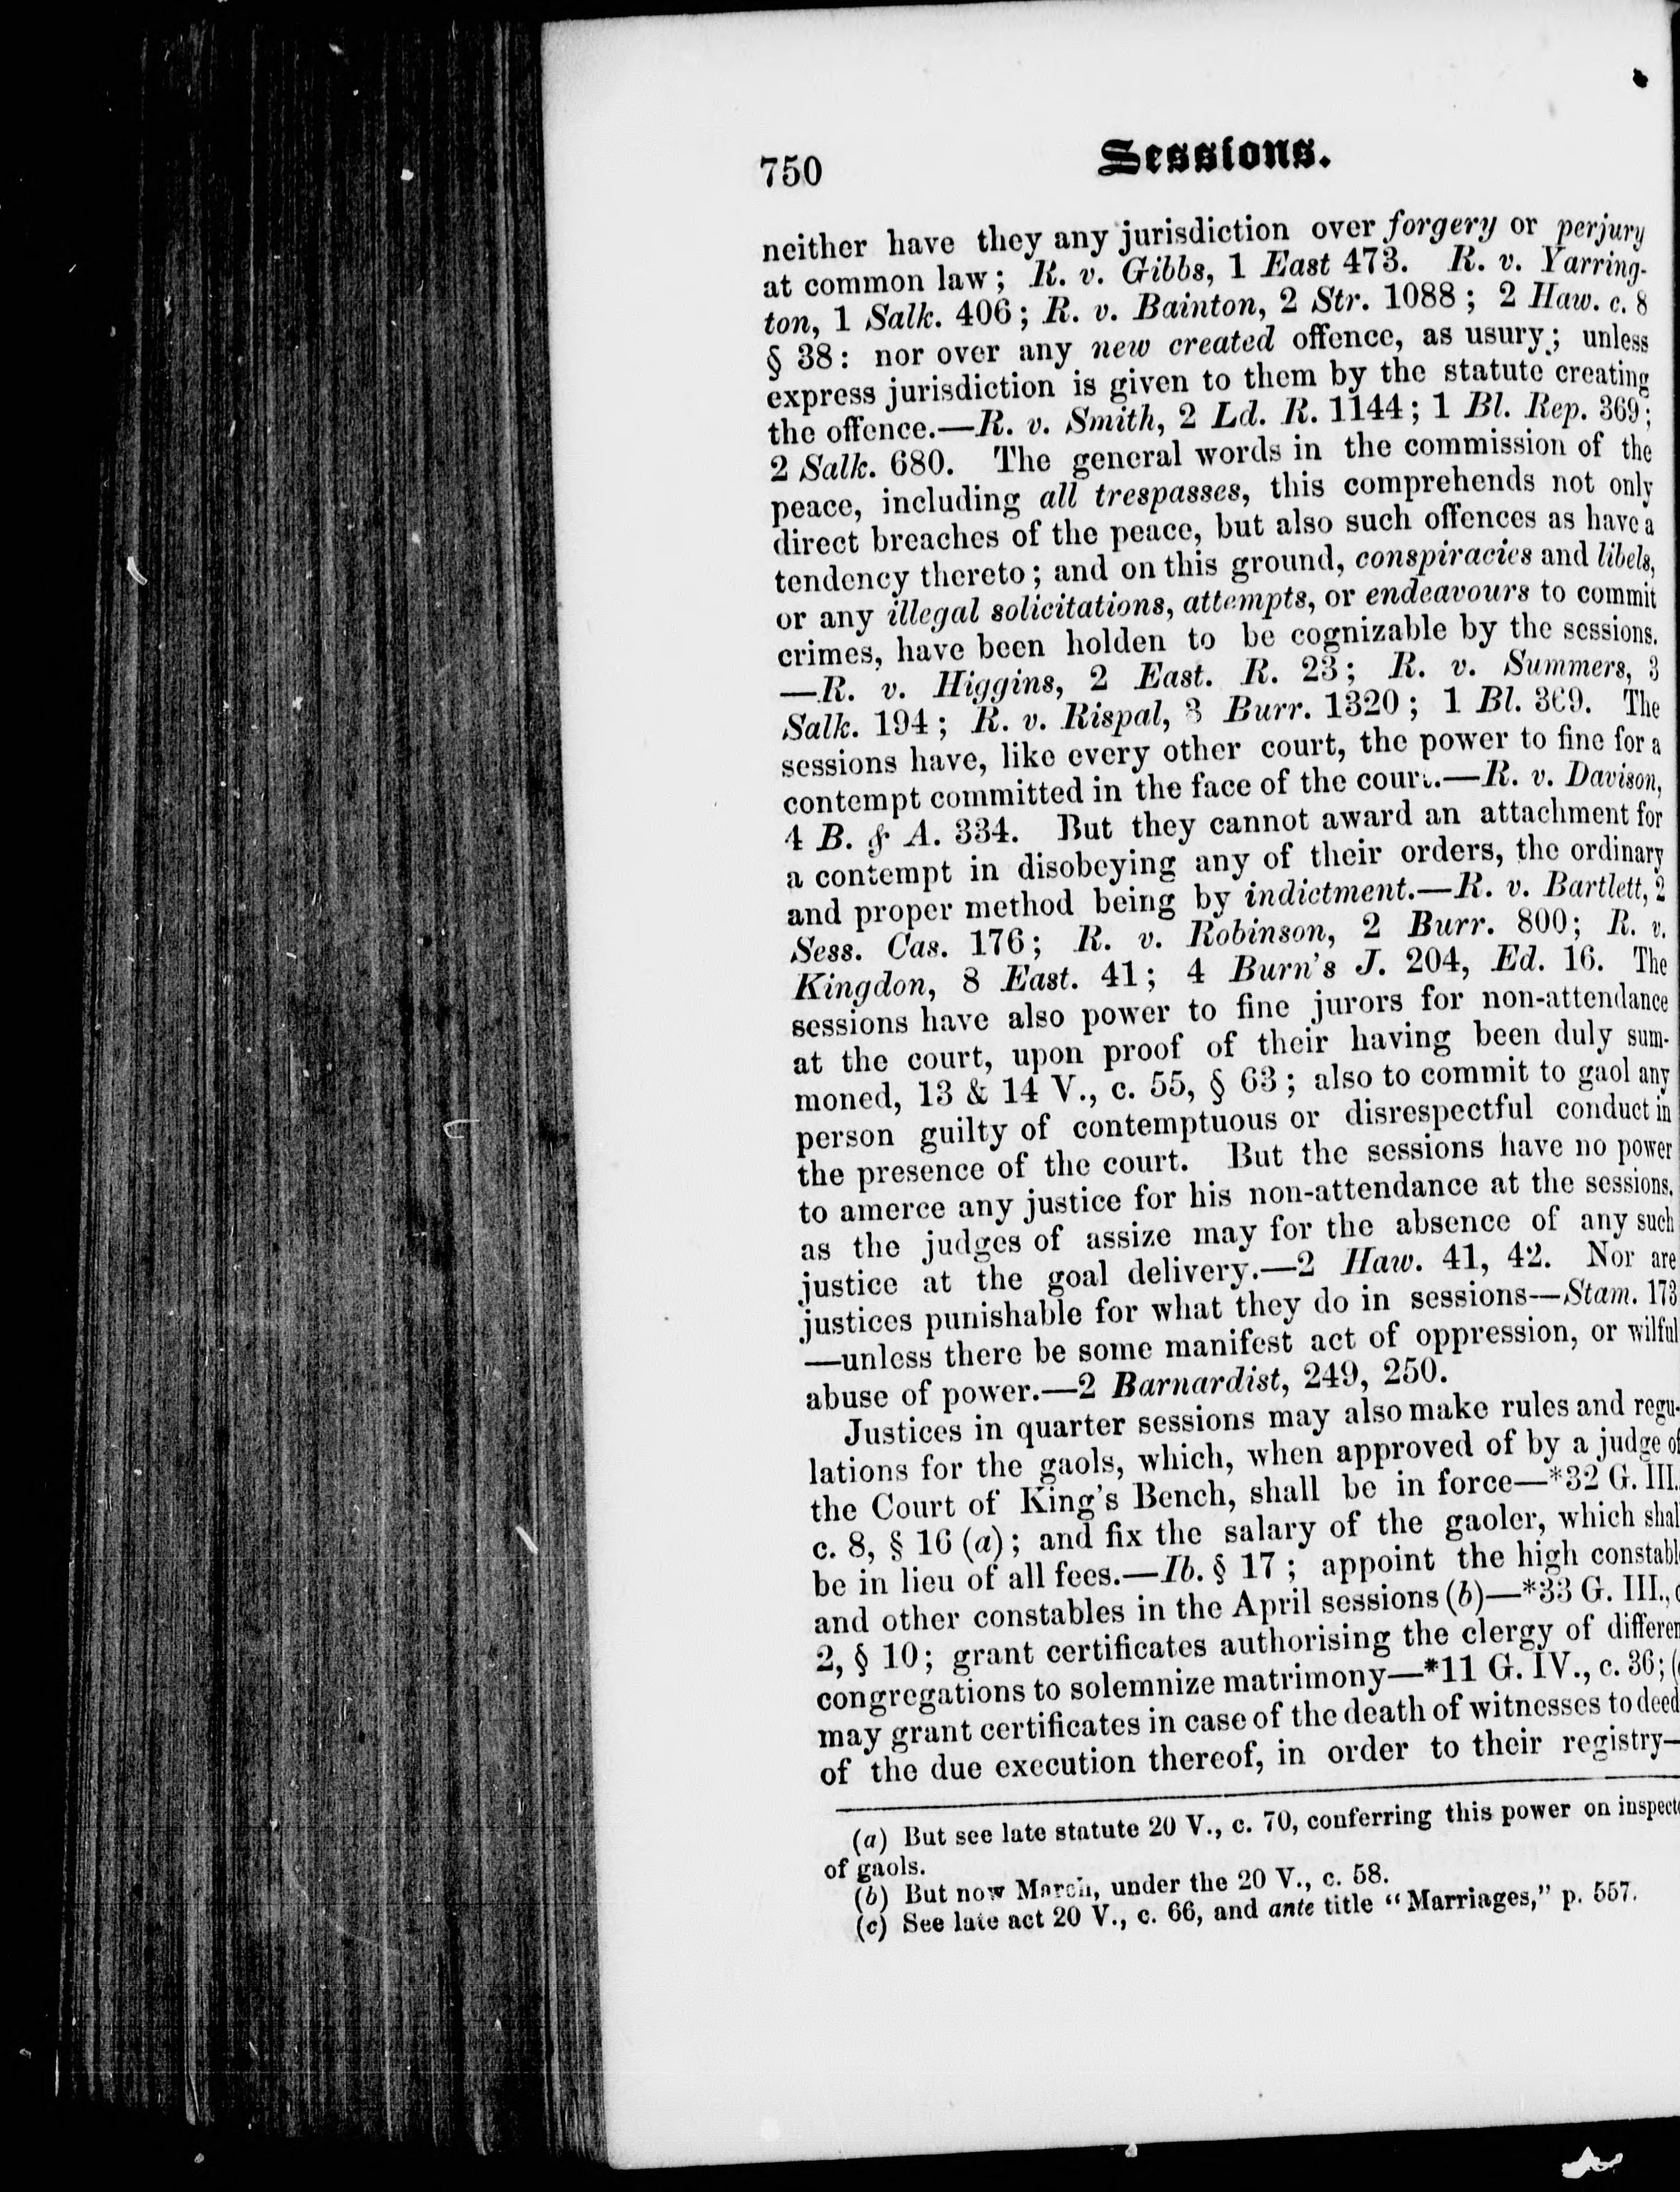 750
Sessions.
neither have they any jurisdiction over forgery or perjury
at common law; R. v. Gibbs, 1 East 473. R. v. Yarring-
ton, 1 Salk. 406; R. v. Bainton, 2 Str. 1088; 2 Haw. c. 8
§ 38: nor over any new created offence, as usury; unless
express jurisdiction is given to them by the statute creating
the offence.—R. v. Smith, 2 Ld. R. 1144; 1 Bl. Rep. 369;
2 Salk. 680. The general words in the commission of the
peace, including all trespasses, this comprehends not only
direct breaches of the peace, but also such offences as have a
tendency thereto; and on this ground, conspiracies and libels,
or any illegal solicitations, attempts, or endeavours to commit
crimes, have been holden to be cognizable by the sessions.
—R. v. Higgins, 2 East. R. 23; R. v. Summers, 3
Salk. 194; R. v. Rispal, 3 Burr. 1320; 1 Bl. 369. The
sessions have, like every other court, the power to fine for a
contempt committed in the face of the court.—R. v. Davison,
4 B. & A. 334. But they cannot award an attachment for
a contempt in disobeying any of their orders, the ordinary
and proper method being by indictment.—R. v. Bartlett, 2
Sess. Cas. 176; R. v. Robinson, 2 Burr. 800; R. v.
Kingdon, 8 East. 41; 4 Burn's J. 204, Ed. 16. The
sessions have also power to fine jurors for non-attendance
at the court, upon proof of their having been duly sum-
moned, 13 & 14 V., c. 55, § 63; also to commit to gaol any
person guilty of contemptuous or disrespectful conduct in
the presence of the court. But the sessions have no power
to amerce any justice for his non-attendance at the sessions,
as the judges of assize may for the absence of any such
justice at the goal delivery.—2 Haw. 41, 42. Nor are
justices punishable for what they do in sessions—Stam. 173
—unless there be some manifest act of oppression, or wilful
abuse of power.—2 Barnardist, 249, 250.
Justices in quarter sessions may also make rules and regu-
lations for the gaols, which, when approved of by a judge of
the Court of King's Bench, shall be in force—*32 G. III.
c. 8, § 16 (a); and fix the salary of the gaoler, which shal
be in lieu of all fees.—Ib. § 17; appoint the high constabl
and other constables in the April sessions (b)—*33 G. III., c
2, § 10; grant certificates authorising the clergy of differen
congregations to solemnize matrimony—*11 G. IV., c. 36; (
may grant certificates in case of the death of witnesses to deed
of the due execution thereof, in order to their registry—
(a) But see late statute 20 V., c. 70, conferring this power on inspect
of gaols.
(b) But now March, under the 20 V., c. 58.
(c) See late act 20 V., c. 66, and ante title "Marriages," p. 557.